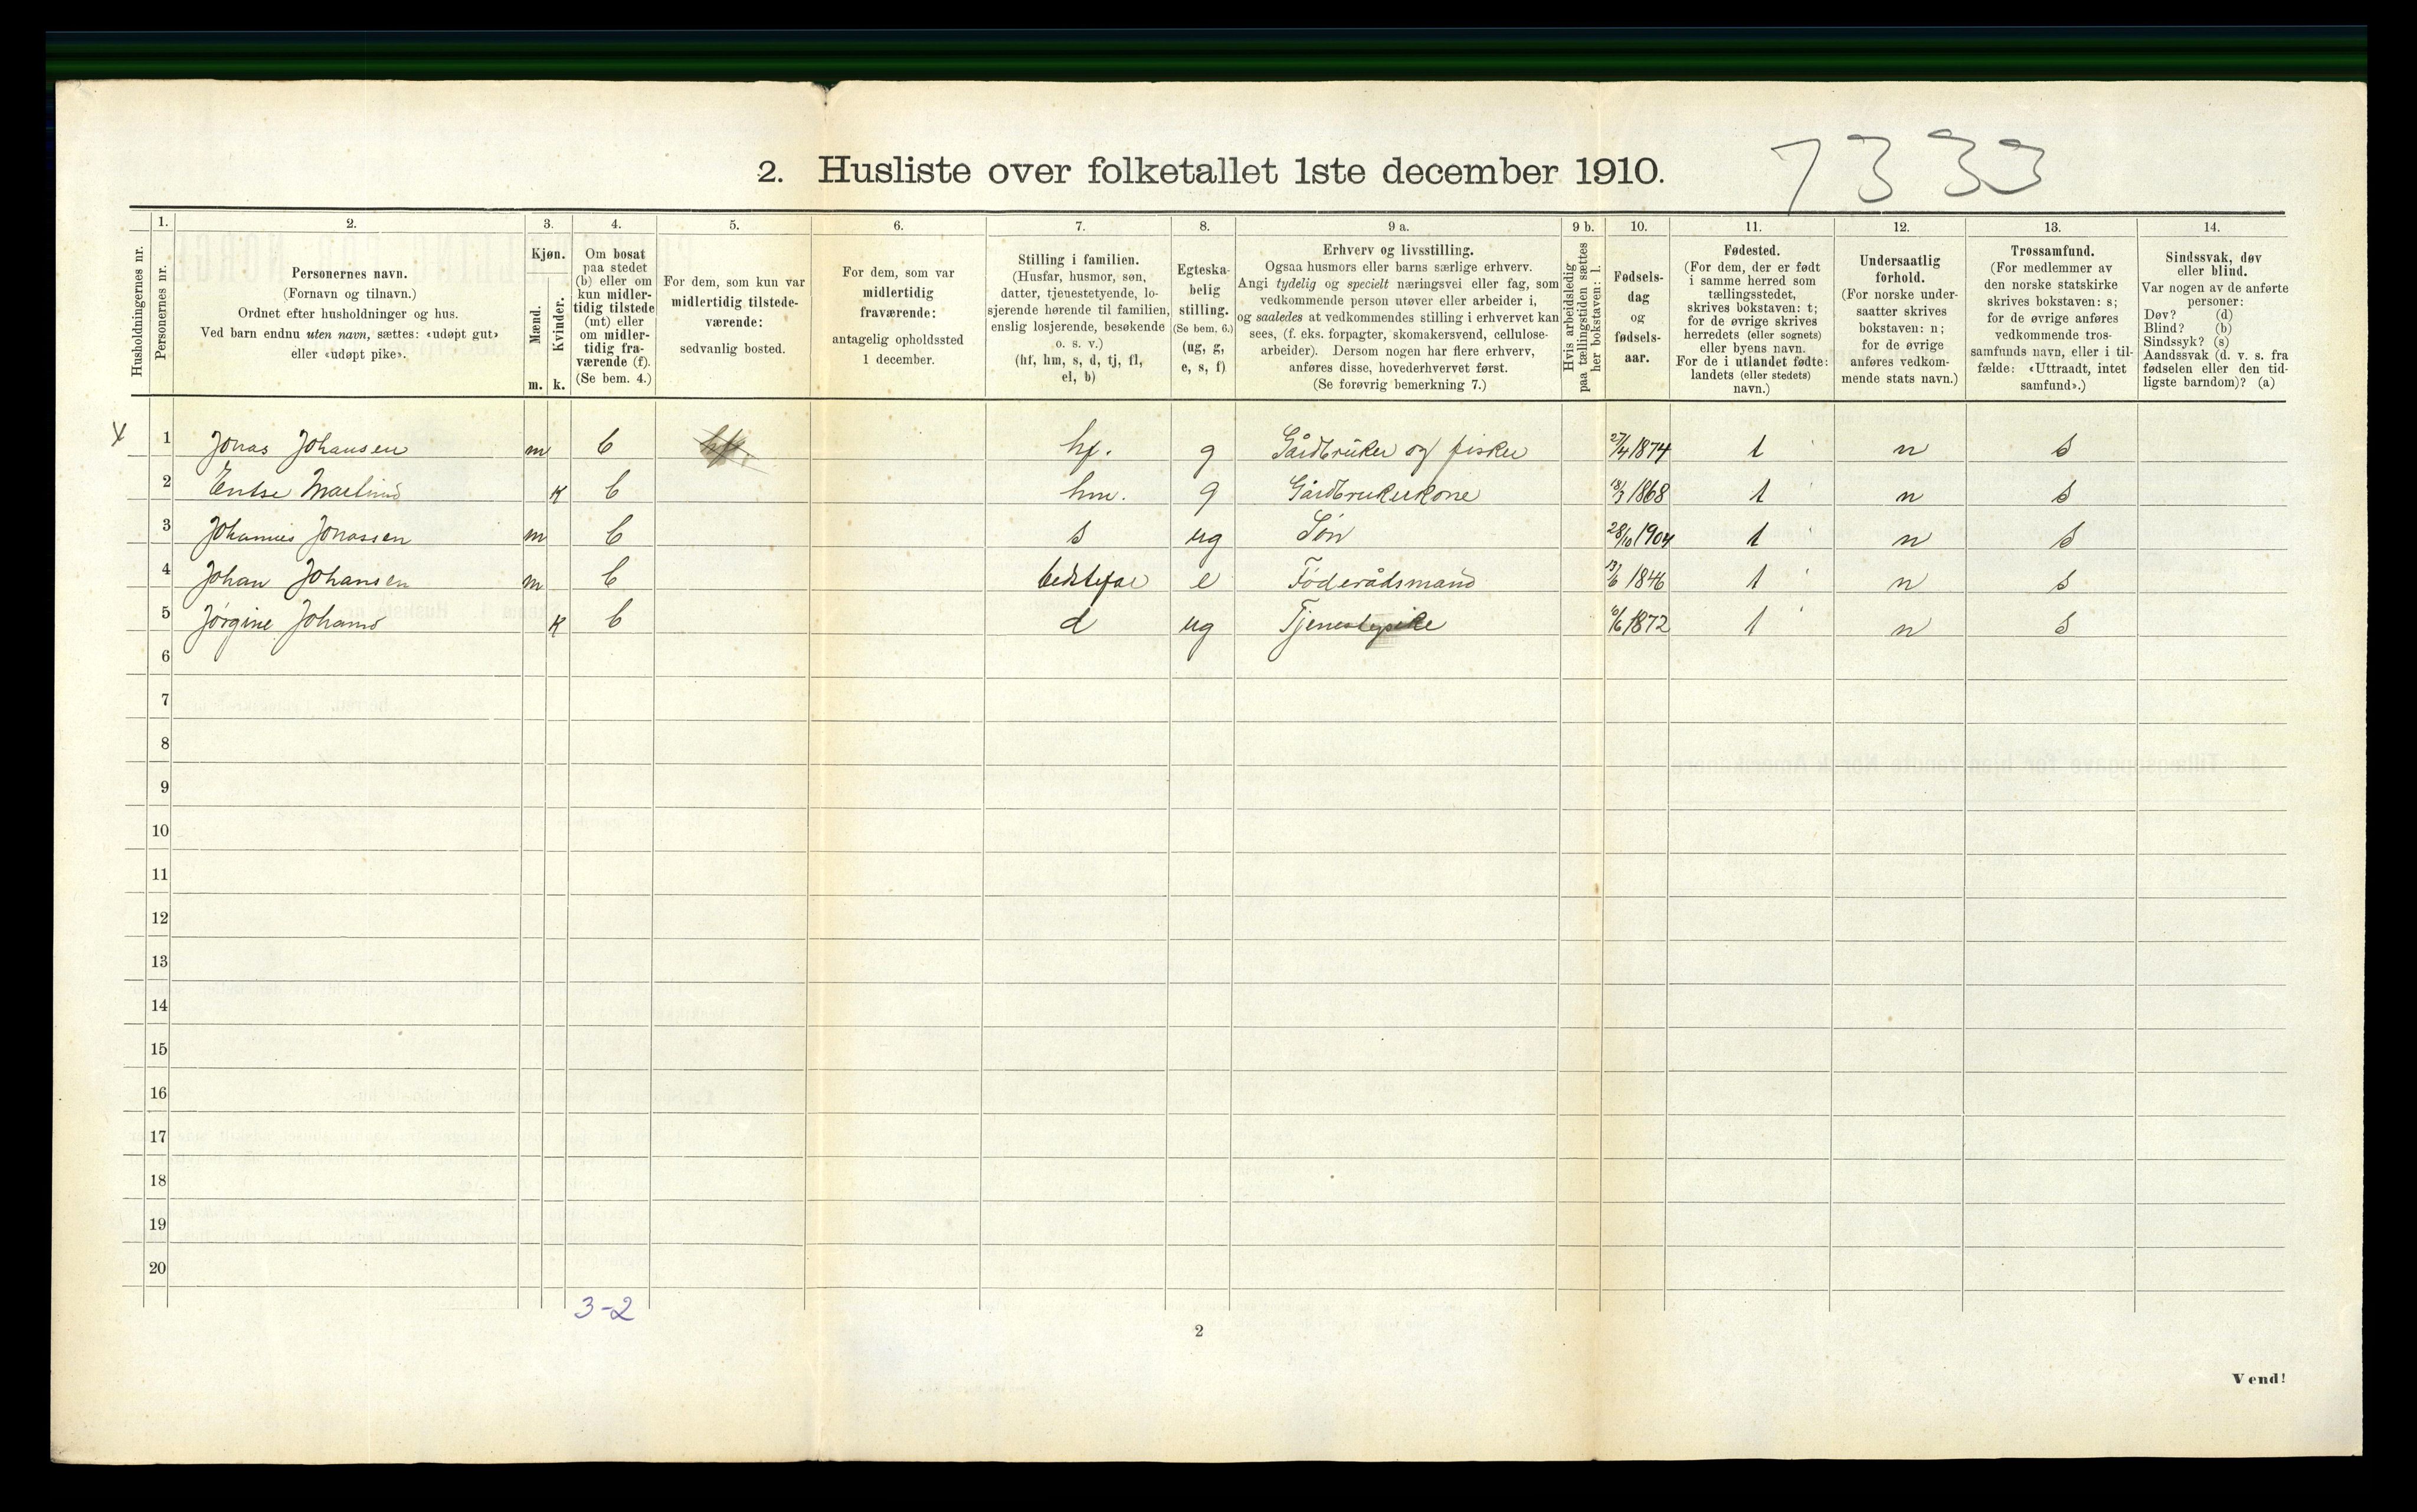 2. Husliste over folketallet 1ste december 1910.
7333
Husholdningernes nr.
1.
Personernes nr.
2.
Personernes navn.
(Fornavn og tilnavn.)
Ordnet efter husholdninger og hus.
Ved barn endnu uten navn, sættes: «udøpt gut»
eller «udøpt pike».
3.
Kjøn.
Mænd.
Kvinder.
m. k.
4.
Om bosat
paa stedet
(b) eller om
kun midler-
tidig tilstede
(mt) eller
om midler-
tidig fra-
værende (f).
(Se bem. 4.)
5.
For dem, som kun var
midlertidig tilstede-
værende:
sedvanlig bosted.
6.
For dem, som var
midlertidig
fraværende:
antagelig opholdssted
1 december.
7.
Stilling i familien.
(Husfar, husmor, søn,
datter, tjenestetyende, lo-
sjerende hørende til familien,
enslig losjerende, besøkende
o. s. v.)
(hf, hm, s, d, tj, fl,
el, b)
8.
Egteska-
belig
stilling.
(Se bem. 6.)
(ug, g,
e, s, f)
9 a.
Erhverv og livsstilling.
Ogsaa husmors eller barns særlige erhverv.
Angi tydelig og specielt næringsvei eller fag, som
vedkommende person utøver eller arbeider i,
og saaledes at vedkommendes stilling i erhvervet kan
sees, (f. eks. forpagter, skomakersvend, cellulose-
arbeider). Dersom nogen har flere erhverv,
anføres disse, hovederhvervet først.
(Se forøvrig bemerkning 7.)
9 b.
Hvis arbeidsledig
paa tællingstiden sættes
her bokstaven: l.
10.
Fødsels-
dag
og
fødsels-
aar.
11.
Fødested.
(For dem, der er født
i samme herred som
tællingsstedet,
skrives bokstaven: t;
for de øvrige skrives
herredets (eller sognets)
eller byens navn.
For de i utlandet fødte:
landets (eller stedets)
navn.)
12.
Undersaatlig
forhold.
(For norske under-
saatter skrives
bokstaven: n;
for de øvrige
anføres vedkom-
mende stats navn.)
13.
Trossamfund.
(For medlemmer av
den norske statskirke
skrives bokstaven: s;
for de øvrige anføres
vedkommende tros-
samfunds navn, eller i til-
fælde: «Uttraadt, intet
samfund».)
14.
Sindssvak, døv
eller blind.
Var nogen av de anførte
personer:
Døv? (d)
Blind? (b)
Sindssyk? (s)
Aandssvak (d. v. s. fra
fødselen eller den tid-
ligste barndom)? (a)
1 Jonas Johansen m b hf. g Gårdbruker og fisker 27/4 1874 t n s
2 Martind k b hm. g Gårdbrukerkone 1868 t n s
3 Johannes Jonassen m b s ug Søn 28/10 1904 t n s
4 Johan Johansen m b bedstefar e Föderådsmand 1846 t n s
5 Jørgine Johansd k b d ug Tjenestepike 1872 t n s
6
7
8
9
10
11
12
13
14
15
16
17
18
19
20
3-2
2
Vend!